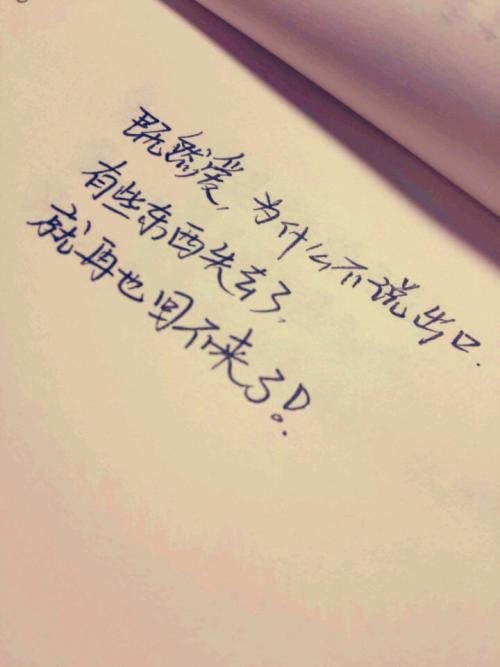 既然爱，为什么不说出口.
有些东西失去了，
就再也回不来了！